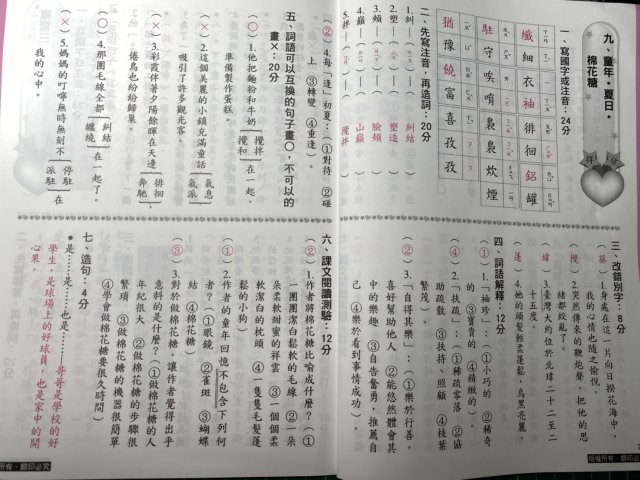 九、童年·夏日·
棉花糖
一、寫國字或注音：24分
纖細
衣袖
徘徊
鋁罐
駐守
唉唷
裊裊
炊煙
猶豫
饒富
喜孜孜
二、先寫注音，再造詞：20分
1.糾
糾結
2.塑
塑造
3.頰
臉頰
4.巔
山巔
5.拌
攪拌
三、改錯別字：8分
（葵）1.身處在這一片向日揆花海中，
我的心情也隨之愉悅。
（攪）2.突然傳來的鞭炮聲，把他的思
緒都絞亂了。
（緯）3.臺灣大約位於北瑋二十二至二
十五度。
（蓬）4.她的頭髮輕柔篷鬆，烏黑亮麗。
四、詞語解釋：12分
（①）1.「袖珍」：（①小巧的 ②稀奇
的 ③寶貴的 ④精緻的）。
（④）2.「扶疏」：（①稀疏零落 ②協
助疏散 ③扶持、照顧 ④枝葉
繁茂）。
（②）3.「自得其樂」：（①樂於行善，
喜好幫助他人 ②能悠然體會其
中的樂趣 ③自告奮勇，推薦自
己 ④樂於看到事情成功）。
（②）4.每「逢」初夏：（①對待 ②碰
上 ③轉變 ④重逢）。
五、詞語可以互換的句子畫○，不可以的
畫×：20分
（○）1.他把麵粉和牛奶
攪拌
攪和
在一起，
準備製作蛋糕。
（×）2.這個美麗的小鎮充滿童話
氣息
氣派
，
吸引了許多觀光客。
（×）3.彩霞伴著夕陽餘暉在天邊
徘徊
奔馳
，
倦鳥也紛紛歸巢。
（○）4.那團毛線全都
糾結
纏繞
在一起了。
（×）5.媽媽的叮嚀無時無刻不
停駐
派駐
在
我的心中。
六、課文閱讀測驗：12分
（②）1.作者將棉花糖比喻成什麼？（①
一團團潔白鬆軟的毛線 ②一朵
朵柔軟甜蜜的祥雲 ③一個個柔
軟潔白的枕頭 ④一隻隻毛髮蓬
鬆的小狗）
（①）2.作者的童年回憶不包含下列何
者？（①眼鏡 ②雀斑 ③蝴蝶
結 ④棉花糖）
（③）3.對於做棉花糖，讓作者覺得出乎
意料的是什麼？（①做棉花糖的人
年紀很大 ②做棉花糖的步驟很
繁瑣 ③做棉花糖的機器很簡單
④學會做棉花糖要很久時間）
七、造句：4分
●是……是……也是……
哥哥是學校的好
學生，是球場上的好球員，也是家中的開
心果。
版權所有·翻印必究
所有·翻印必究